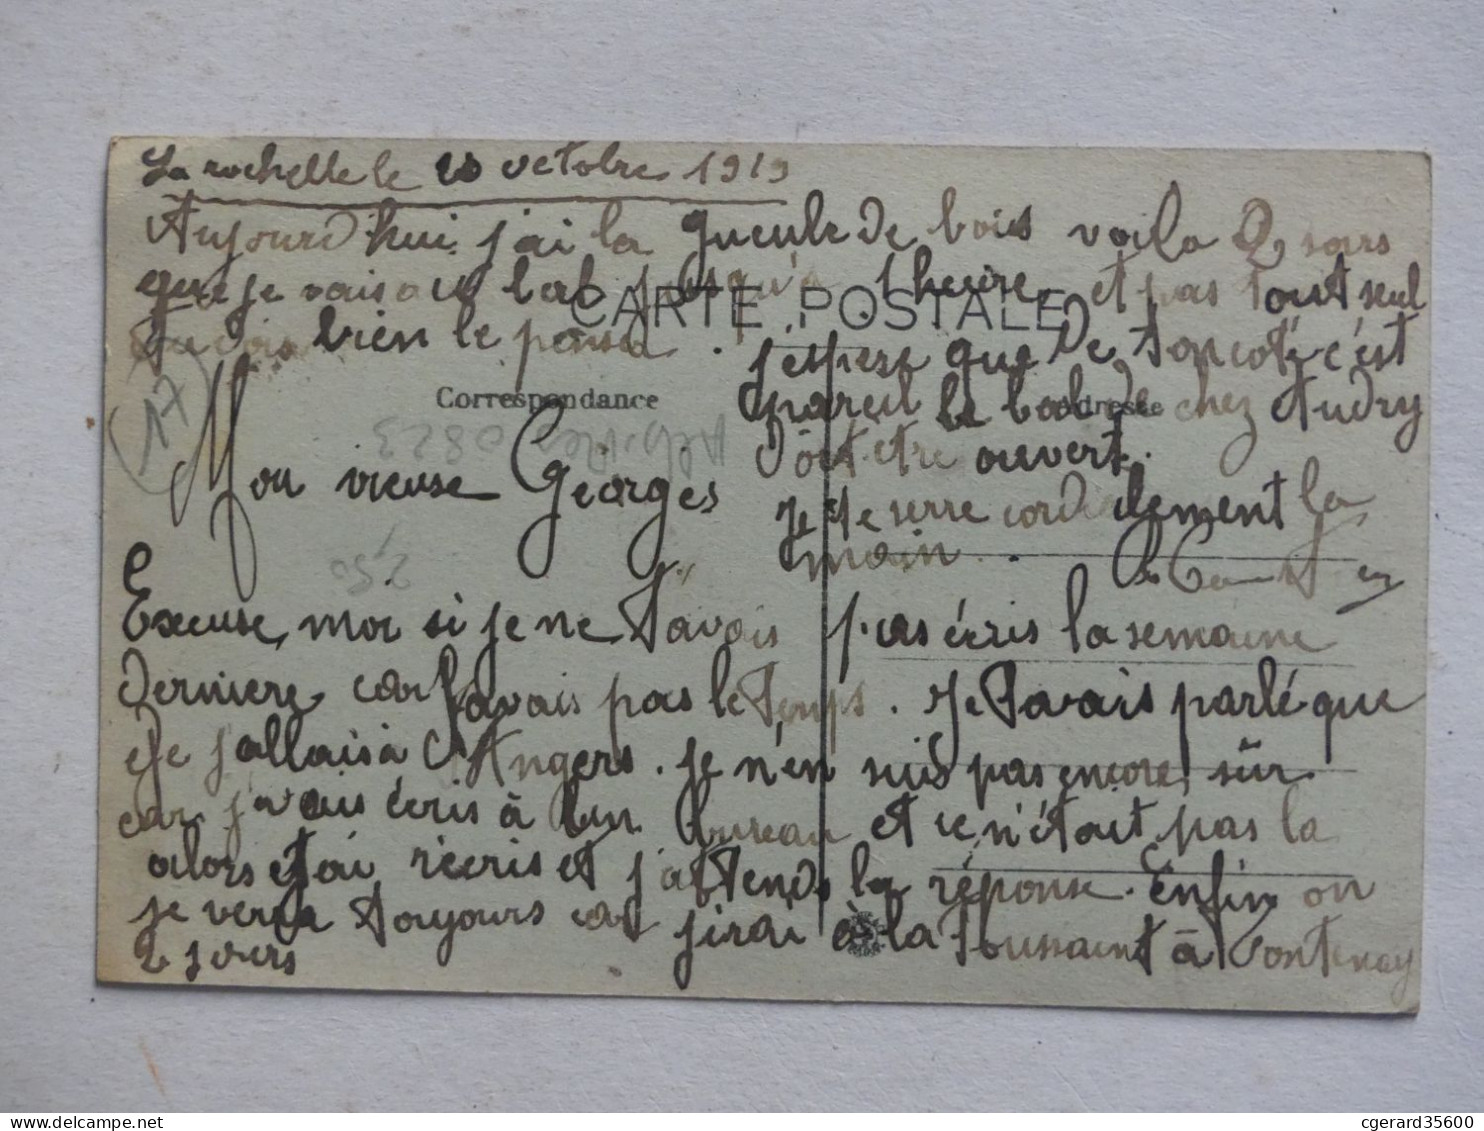 La rochelle le 20 octobre 1919
Aujourd'hui j'ai la gueule de bois voila 2 soirs
que je vais au bal jusqu'à 1 heure, et pas tout seul
tu dois bien le pensé.
CARTE POSTALE
j'espere que de ton coté c'est
Correspondance
Adresse
pareil le bal de chez Audry
doit etre ouvert.
(17)
Mon vieuse Georges
Je te serre cordialement la
main.
250
Excuse, moi si je ne t'avais pas écris la semaine
derniere, car j'avais pas le temps. Je t'avais parlé que
je j'allais à Angers. je n'en suis pas encore, sûr
car j'avais écris à un bureau et ce n'était pas la
alors et ai récris et j'attends la réponse. Enfin on
je verra toujours car j'irai à la toussaint à Fontenay
2 jours
cgerard35600